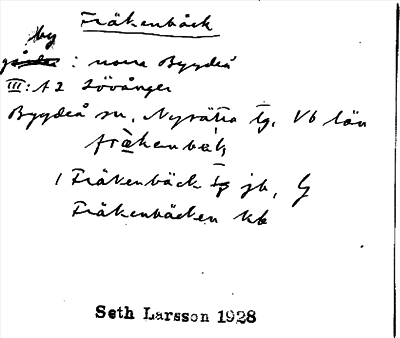 Fräkenbäck
by
: norra Bygdeå
III: A2 Lövånger
Bygdeå sn, Nysätra tg, Vb län
fràkenbæk
1 Fräkenbäck jb, G
Fräkenbäcken kb
Seth Larsson 1928